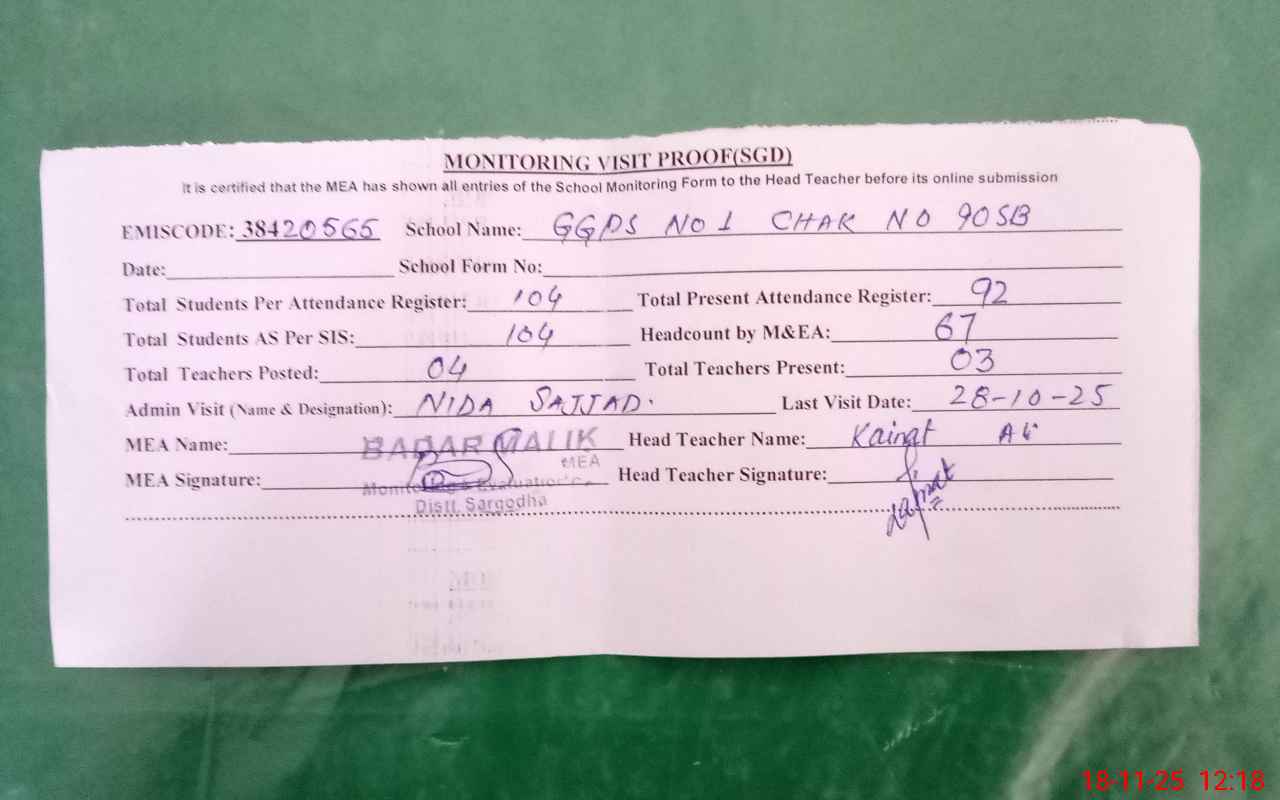 MONITORING VISIT PROOF(SGD)
It is certified that the MEA has shown all entries of the School Monitoring Form to the Head Teacher before its online submission
EMISCODE: 38420565 School Name: GGPS NO 1 CHAK NO 90SB
Date: School Form No:
Total Students Per Attendance Register: 104 Total Present Attendance Register: 92
Total Students AS Per SIS: 104 Headcount by M&EA: 67
Total Teachers Posted: 04 Total Teachers Present: 03
Admin Visit (Name & Designation): NIDA SAJJAD. Last Visit Date: 28-10-25
MEA Name: BADAR MALIK Head Teacher Name: Kainat
MEA
MEA Signature: Head Teacher Signature:
Distt. Sargodha
18-11-25 12:18